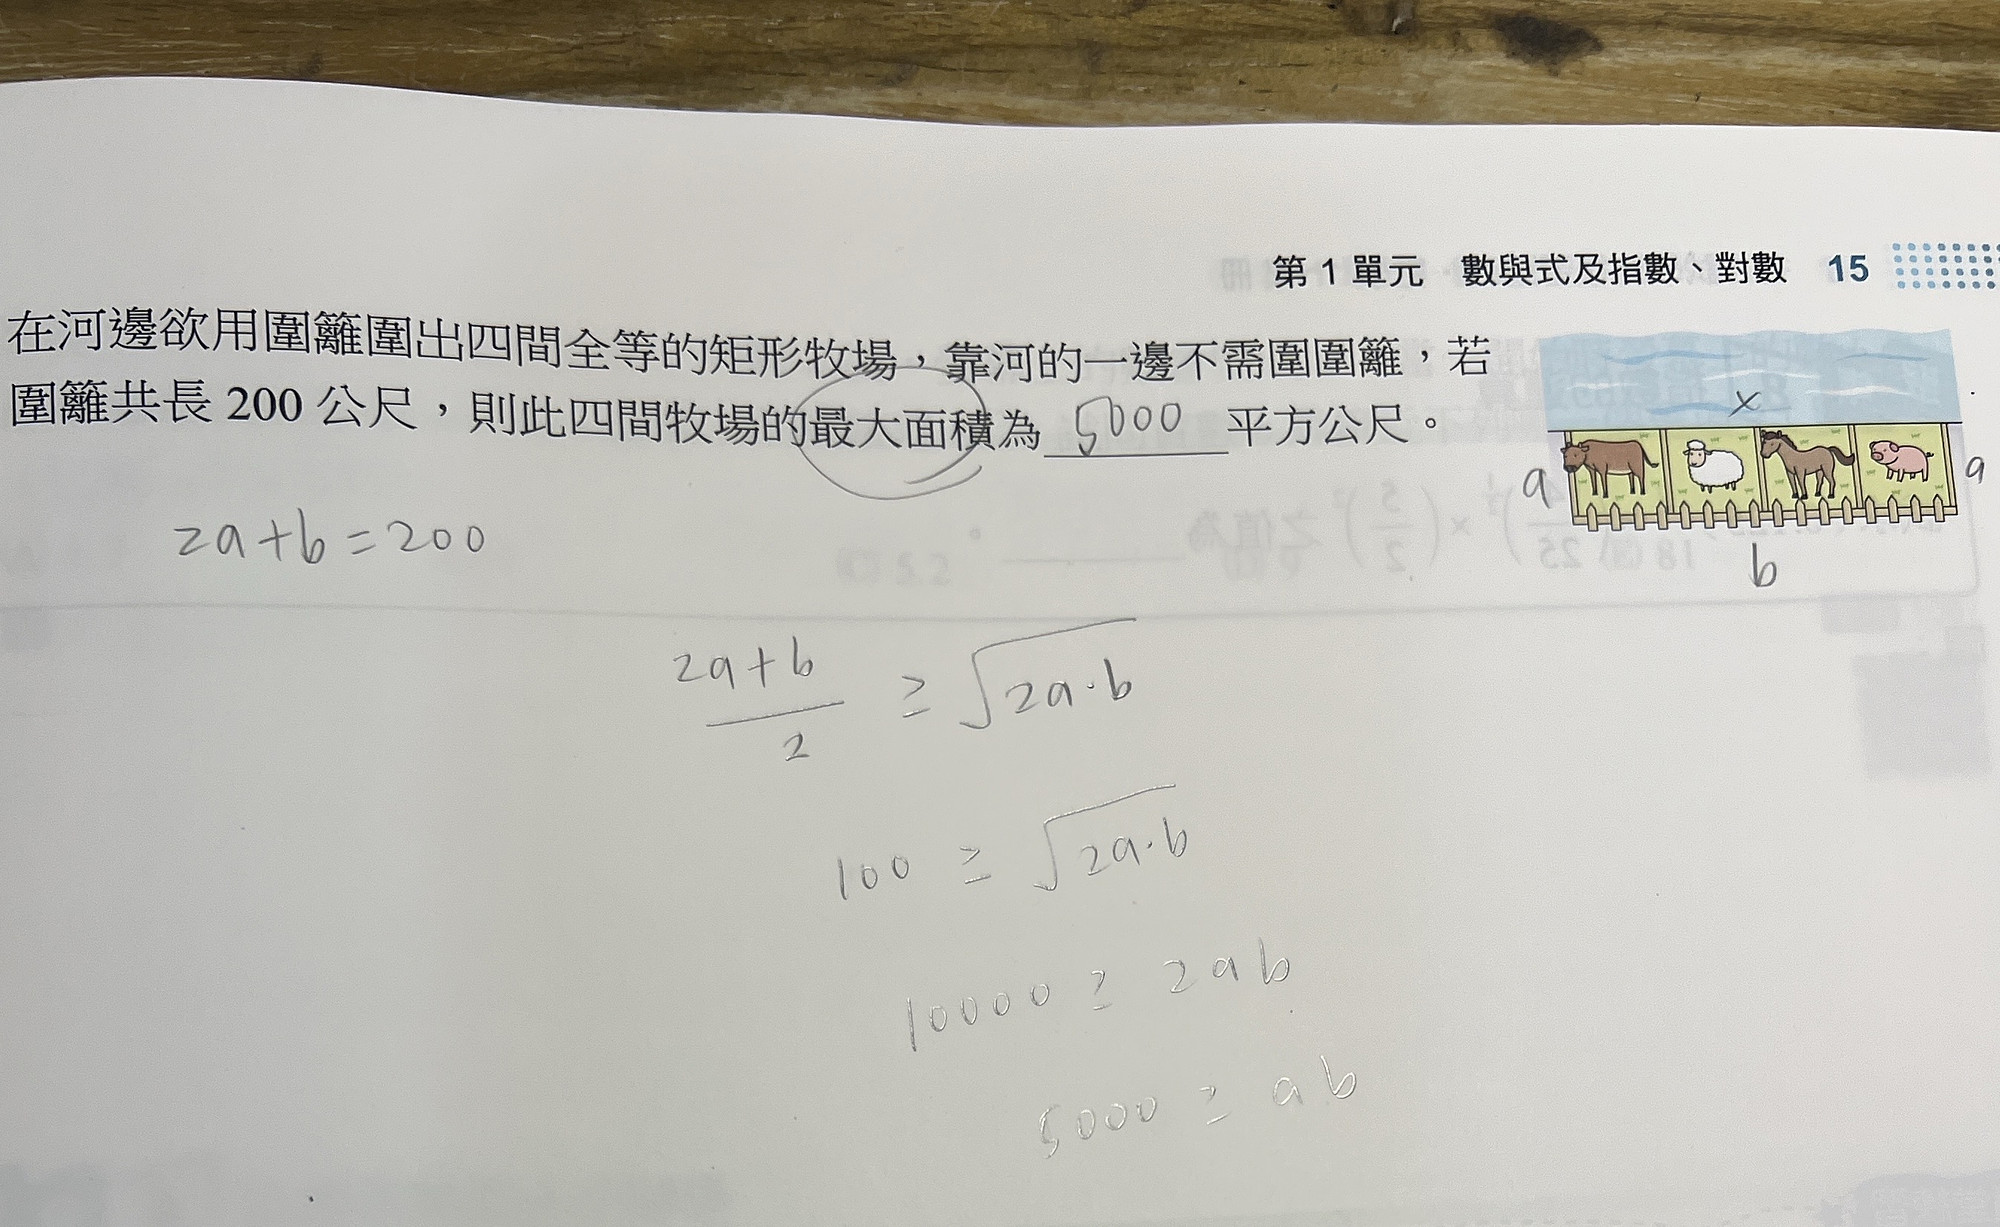 第 1 單元 數與式及指數、對數 15
在河邊欲用圍籬圍出四間全等的矩形牧場，靠河的一邊不需圍圍籬，若
圍籬共長 200 公尺，則此四間牧場的最大面積為 5000 平方公尺。
x
a
a
b
2a+b=200
2a+b
2
≥ √2a·b
100 ≥ √2a·b
10000 ≥ 2ab
5000 ≥ ab